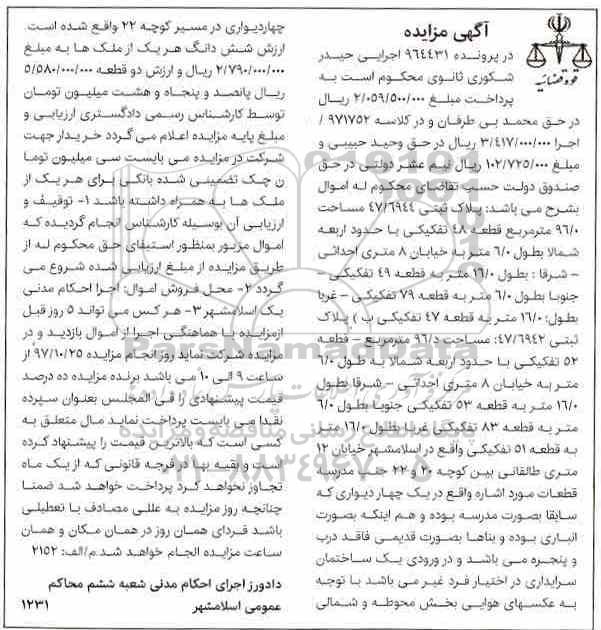 آگهی مزایده
قوه قضائیه
در پرونده ۹۶۴۴۳۱ اجرایی حیدر
شکوری ثانوی محکوم است به
پرداخت مبلغ ۲/۰۵۹/۵۰۰/۰۰۰ ریال
در حق محمد بی طرفان و در کلاسه ۹۷۱۷۵۲ /
اجرا ۳/۴۱۷/۰۰۰/۰۰۰ ریال در حق وحید حبیبی و
مبلغ ۱۰۲/۷۲۵/۰۰۰ ریال نیم عشر دولتی در حق
صندوق دولت حسب تقاضای محکوم له اموال
بشرح می باشد: پلاک ثبتی ۴۷/۶۹۴۴ مساحت
۹۶/۰ مترمربع قطعه ۴۸ تفکیکی با حدود اربعه
شمالا بطول ۶/۰ متر به خیابان ۸ متری احداثی
- شرقا : بطول ۱۶/۰ متر به قطعه ۴۹ تفکیکی -
جنوبا بطول ۶/۰ متر به قطعه ۷۹ تفکیکی - غربا
بطول: ۱۶/۰ متر به قطعه ۴۷ تفکیکی ب ) پلاک
ثبتی ۴۷/۶۹۴۲: مساحت ۹۶/د مترمربع - قطعه
۵۲ تفکیکی با حدود اربعه شمالا به طول ۶/۰
متر به خیابان ۸ متری احداثی - شرقا بطول
۱۶/۰ متر به قطعه ۵۳ تفکیکی جنوبا بطول ۶/۰
متر به قطعه ۸۳ تفکیکی غربا بطول ۱۶/۰ متر
به قطعه ۵۱ تفکیکی واقع در اسلامشهر خیابان ۱۲
متری طالقانی بین کوچه ۲۰ و ۲۲ جنب مدرسه
قطعات مورد اشاره واقع در یک چهار دیواری که
سابقا بصورت مدرسه بوده و هم اینکه بصورت
انباری بوده و بناها بصورت قدیمی فاقد درب
و پنجره می باشد و در ورودی یک ساختمان
سرایداری در اختیار فرد غیر می باشد با توجه
به عکسهای هوایی بخش محوطه و شمالی
چهاردیواری در مسیر کوچه ۲۲ واقع شده است.
ارزش شش دانگ هر یک از ملک ها به مبلغ
۲/۷۹۰/۰۰۰/۰۰۰ ریال و ارزش دو قطعه ۵/۵۸۰/۰۰۰/۰۰۰
ریال پانصد و پنجاه و هشت میلیون تومان
توسط کارشناس رسمی دادگستری ارزیابی و
مبلغ پایه مزایده اعلام می گردد خریدار جهت
شرکت در مزایده می بایست سی میلیون توما
ن چک تضمینی شده بانکی برای هر یک از
ملک ها به همراه داشته باشد ۱- توقیف و
ارزیابی آن بوسیله کارشناس انجام گردیده که
اموال مزبور بمنظور استیفای حق محکوم له از
طریق مزایده از مبلغ ارزیابی شده شروع می
گردد ۲- محل فروش اموال: اجرا احکام مدنی
یک اسلامشهر ۳- هر کس می تواند ۵ روز قبل
ازمزایده با هماهنگی اجرا از اموال بازدید و در
مزایده شرکت نماید روز انجام مزایده ۹۷/۱۰/۲۵ از
ساعت ۹ الی ۱۰ می باشد برنده مزایده ده درصد
قیمت پیشنهادی را فی المجلس بعنوان سپرده
نقدا می بایست پرداخت نماید مال متعلق به
کسی است که بالاترین قیمت را پیشنهاد کرده
است و بقیه بها در فرجه قانونی که از یک ماه
تجاوز نخواهد کرد پرداخت خواهد شد ضمنا
چنانچه روز مزایده به عللی مصادف با تعطیلی
باشد فردای همان روز در همان مکان و همان
ساعت مزایده انجام خواهد شد.م/الف: ۲۱۵۲
دادورز اجرای احکام مدنی شعبه ششم محاکم
عمومی اسلامشهر ۱۲۳۱
ParsNamadData